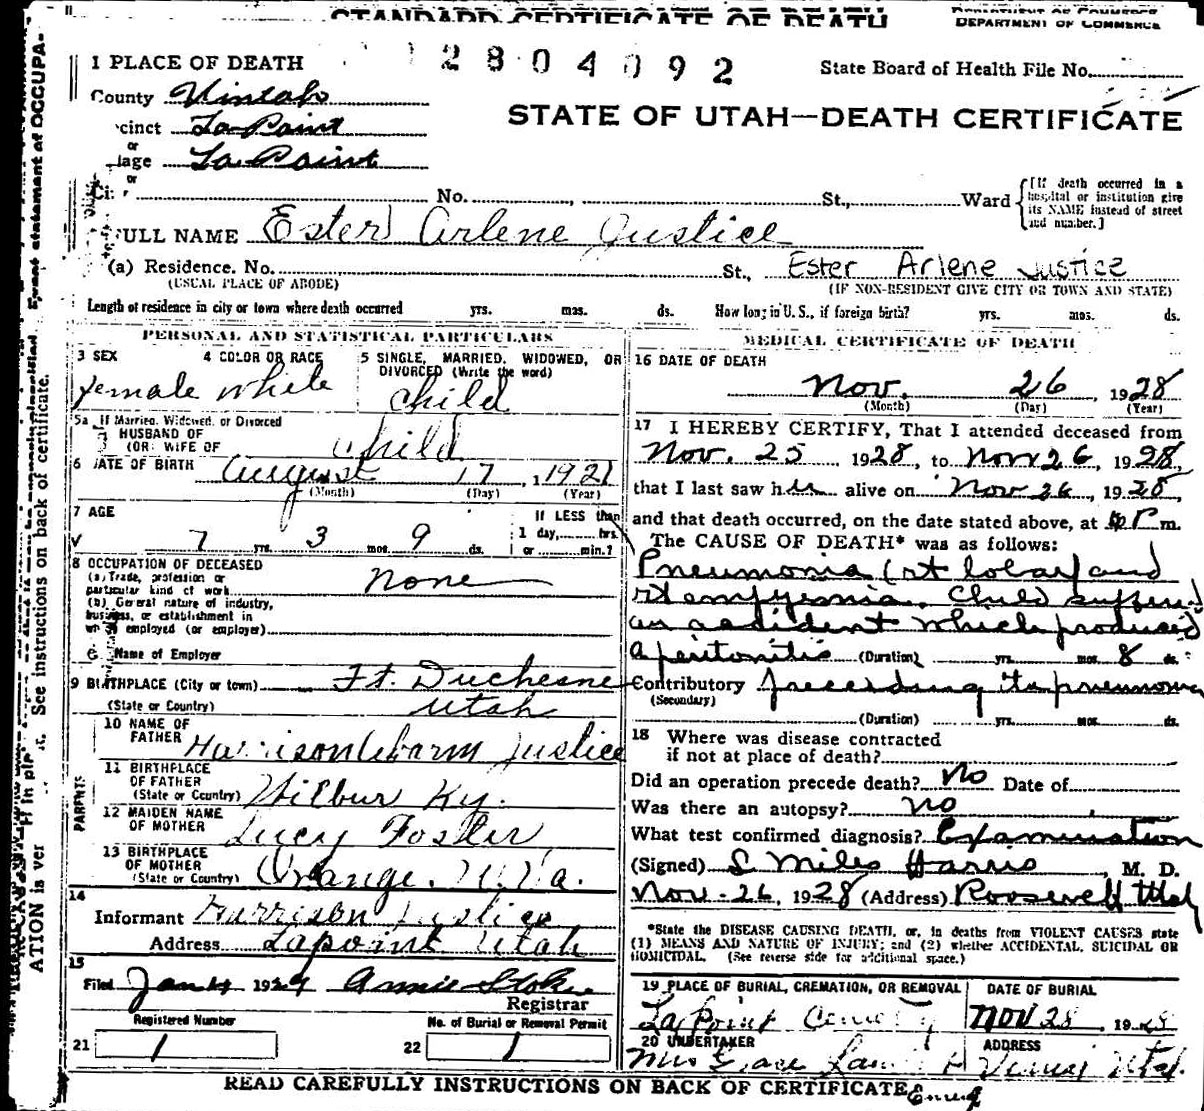 STANDARD CERTIFICATE OF DEATH
DEPARTMENT OF COMMERCE
DEPARTMENT OF COMMERCE
1 PLACE OF DEATH
2804092
State Board of Health File No.
County Uintah
STATE OF UTAH—DEATH CERTIFICATE
cinct La Point
or
lage La Point
or
No. St., Ward
[If death occurred in a hospital or institution give its NAME instead of street and number.]
FULL NAME Ester Arlene Justice
(a) Residence. No. St., Ester Arlene Justice
(USUAL PLACE OF ABODE) (IF NON-RESIDENT GIVE CITY OR TOWN AND STATE)
Length of residence in city or town where death occurred yrs. mos. ds. How long in U. S., if foreign birth? yrs. mos. ds.
PERSONAL AND STATISTICAL PARTICULARS
3 SEX 4 COLOR OR RACE 5 SINGLE, MARRIED, WIDOWED, OR
DIVORCED (Write the word)
female white child
5a If Married, Widowed, or Divorced
HUSBAND OF
(OR) WIFE OF child
6 DATE OF BIRTH August 17, 1921
(Month) (Day) (Year)
7 AGE
If LESS than
1 day, hrs.
or min.?
7 yrs. 3 mos. 9 ds.
8 OCCUPATION OF DECEASED
(a) Trade, profession or
particular kind of work none
(b) General nature of industry,
business, or establishment in
which employed (or employer)
Name of Employer
9 BIRTHPLACE (City or town) Ft. Duchesne
(State or Country) Utah
PARENTS
10 NAME OF
FATHER Harrison Justice
11 BIRTHPLACE
OF FATHER
(State or Country) Wilbur Ky.
12 MAIDEN NAME
OF MOTHER Lucy Foster
13 BIRTHPLACE
OF MOTHER
(State or Country) Orange, W.Va.
14
Informant Harrison Justice
Address Lapoint Utah
15
Filed Jan 4 1929 Annie
Registrar
Registered Number No. of Burial or Removal Permit
21 1 22 1
MEDICAL CERTIFICATE OF DEATH
16 DATE OF DEATH
Nov. 26, 1928
(Month) (Day) (Year)
17 I HEREBY CERTIFY, That I attended deceased from
Nov. 25 1928, to Nov 26, 1928,
that I last saw her alive on Nov 26, 1928,
and that death occurred, on the date stated above, at m.
The CAUSE OF DEATH* was as follows:
Pneumonia (rt lobar) and
rt empyemia. Child suffered
an accident which produced
a peritonitis (Duration) yrs. mos. 8 ds.
Contributory preceeding the pneumonia
(Secondary)
(Duration) yrs. mos. ds.
18 Where was disease contracted
if not at place of death?
Did an operation precede death? No Date of
Was there an autopsy? no
What test confirmed diagnosis? Examination
(Signed) L Miles Harris, M. D.
Nov-26, 1928 (Address) Roosevelt Utah
*State the DISEASE CAUSING DEATH, or, in deaths from VIOLENT CAUSES state
(1) MEANS AND NATURE OF INJURY; and (2) whether ACCIDENTAL, SUICIDAL OR
HOMICIDAL. (See reverse side for additional space.)
19 PLACE OF BURIAL, CREMATION, OR REMOVAL DATE OF BURIAL
La Point Cemetery Nov 28, 1928
20 UNDERTAKER ADDRESS
Mrs Grace Utah.
READ CAREFULLY INSTRUCTIONS ON BACK OF CERTIFICATE
Exact statement of OCCUPA-
See instructions on back of certificate.
ATION is ver